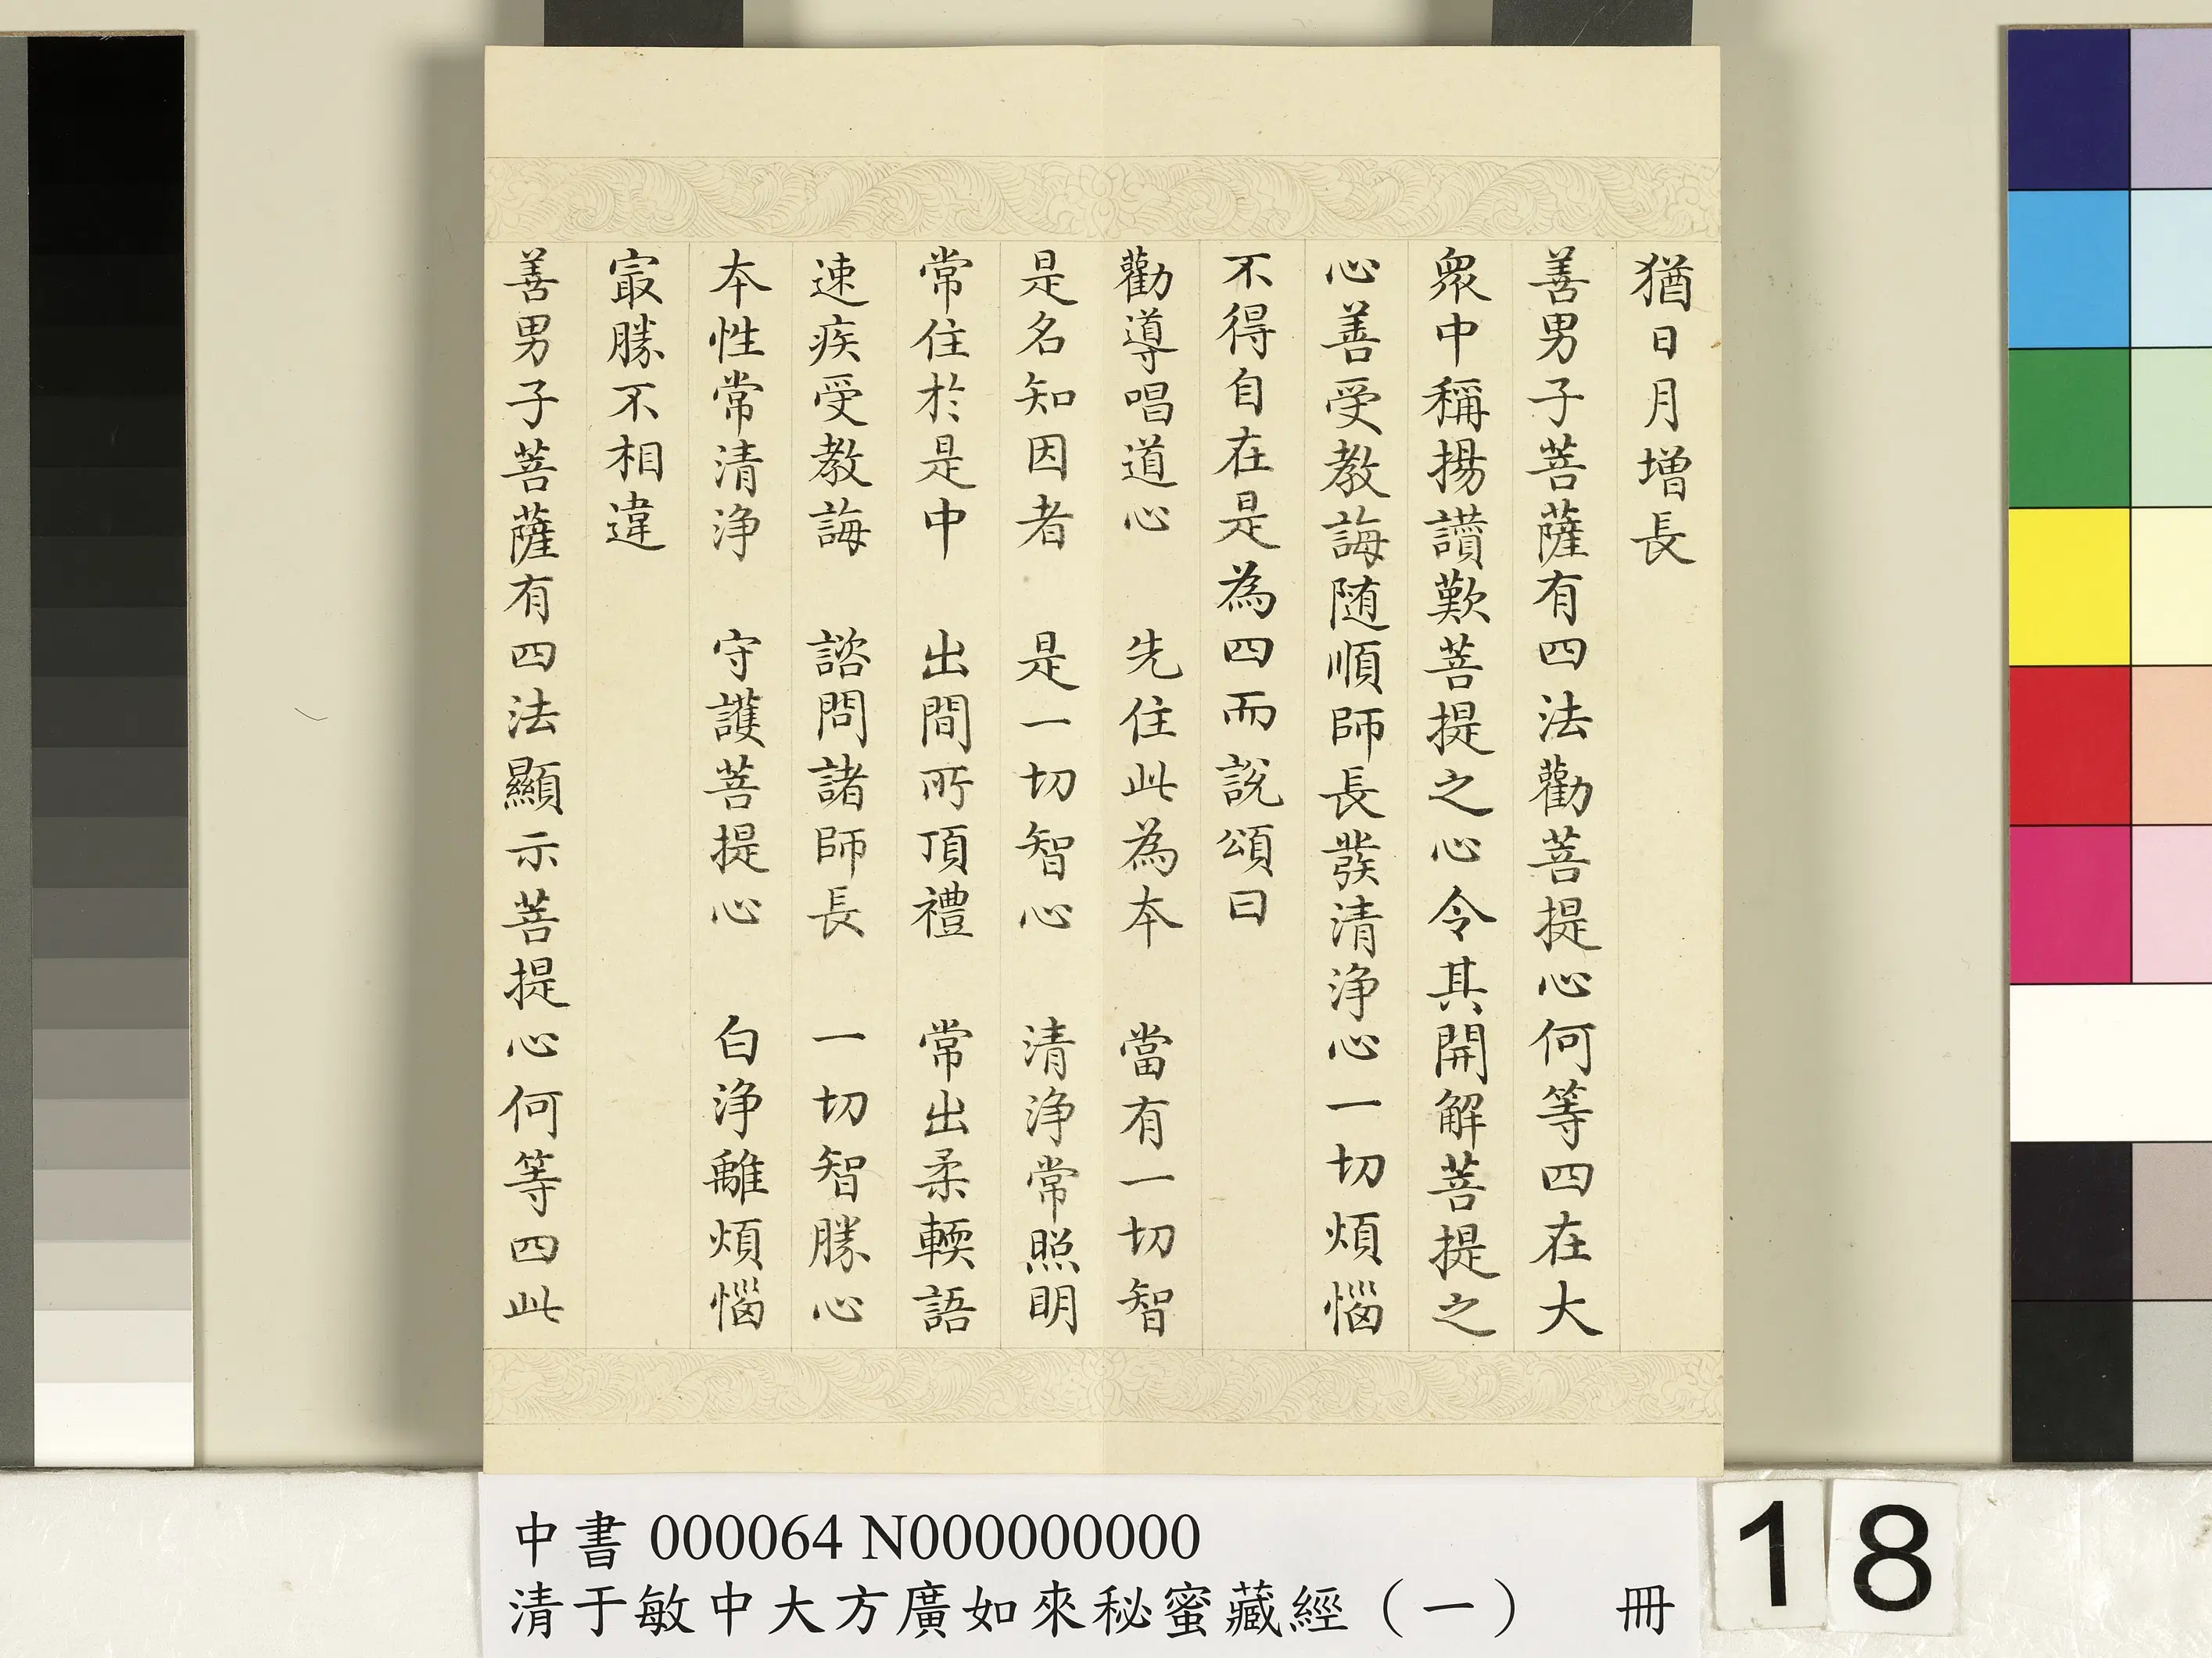 猶日月增長
善男子菩薩有四法勸菩提心何等四在大
衆中稱揚讚歎菩提之心令其開解菩提之
心善受教誨随順師長發清浄心一切煩惱
不得自在是為四而說頌曰
勸導唱道心　先住此為本　當有一切智
是名知因者　是一切智心　清浄常照明
常住於是中　出間所頂禮　常出柔輭語
速疾受教誨　諮問諸師長　一切智勝心
本性常清浄　守護菩提心　白浄離煩惱
㝡勝不相違
善男子菩薩有四法顯示菩提心何等四此
中書 000064 N000000000
清于敏中大方廣如來秘蜜藏經（一）　冊
18